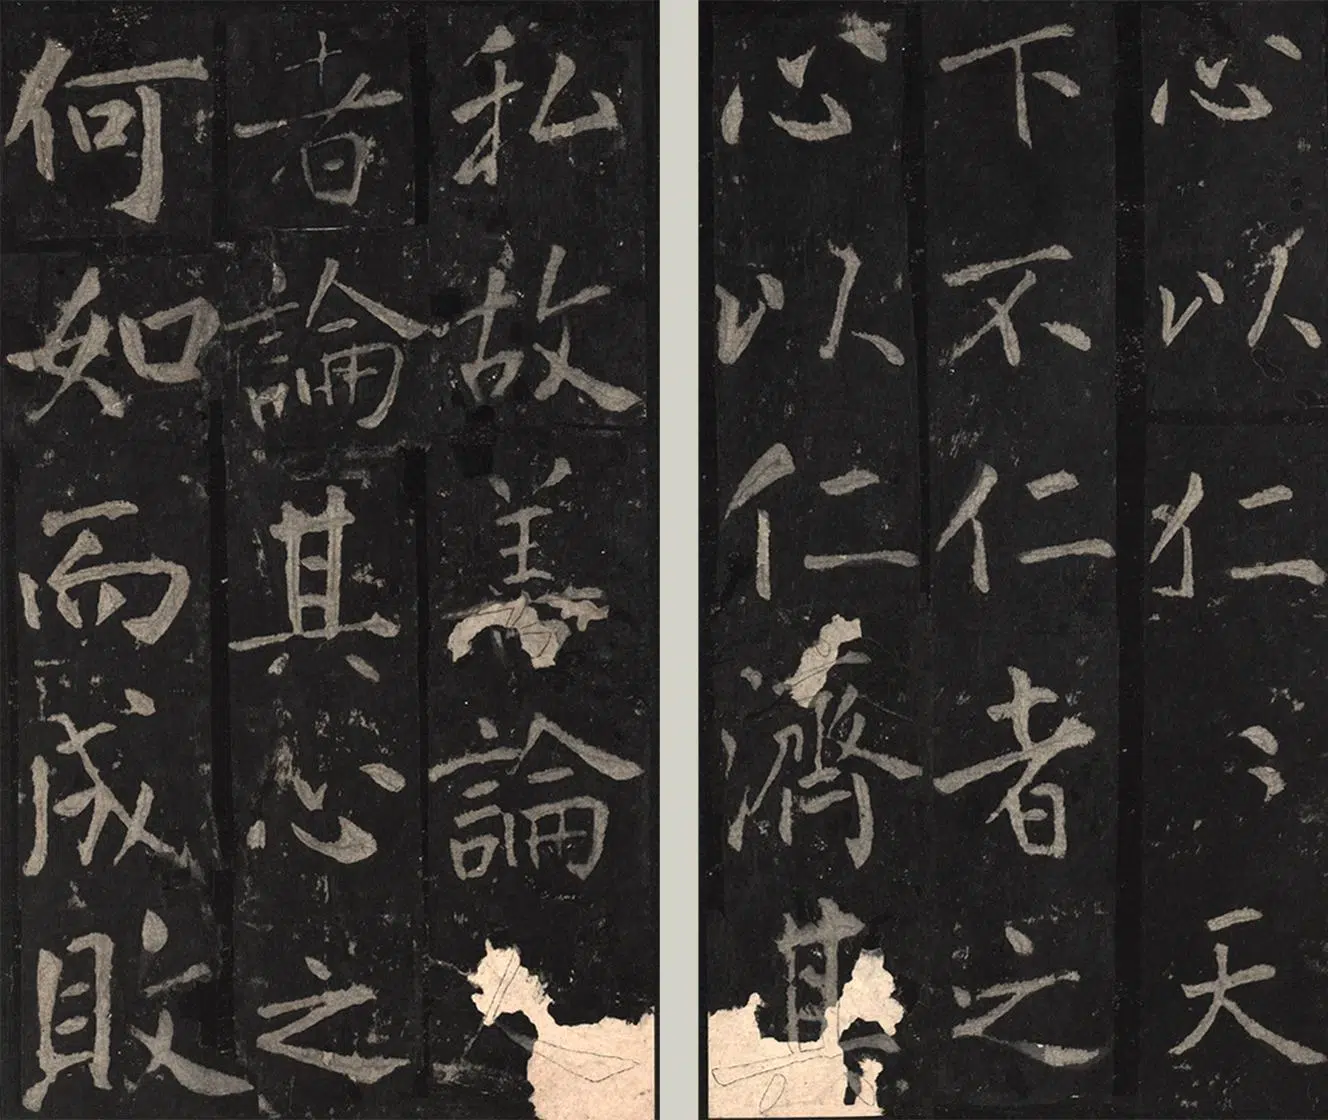 心以仁〻天
下不仁者之
心以仁濟其
私故善論人
者論其心之
何如而成敗